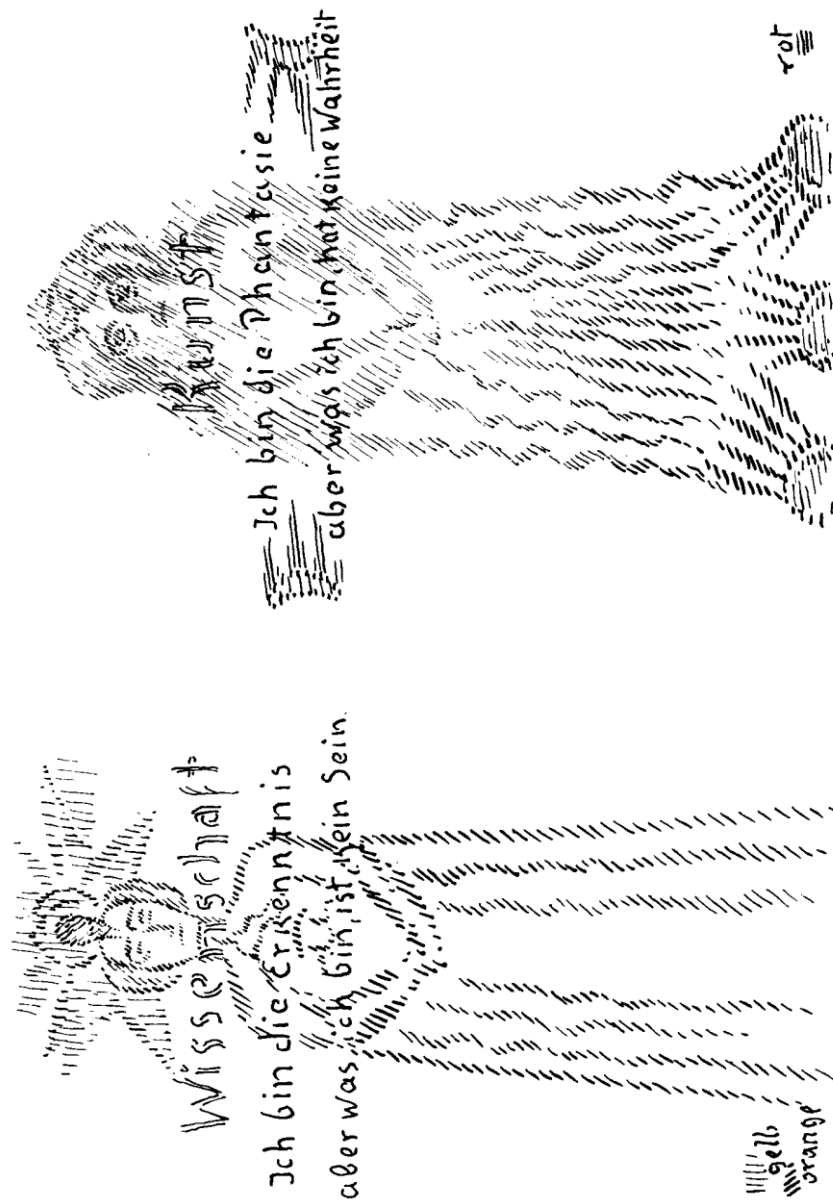 Wissenschaft
Ich bin die Erkenntnis
aber was ich bin, ist kein Sein.
gelb
orange
Kunst
Ich bin die Phantasie
aber was ich bin, hat keine Wahrheit
rot